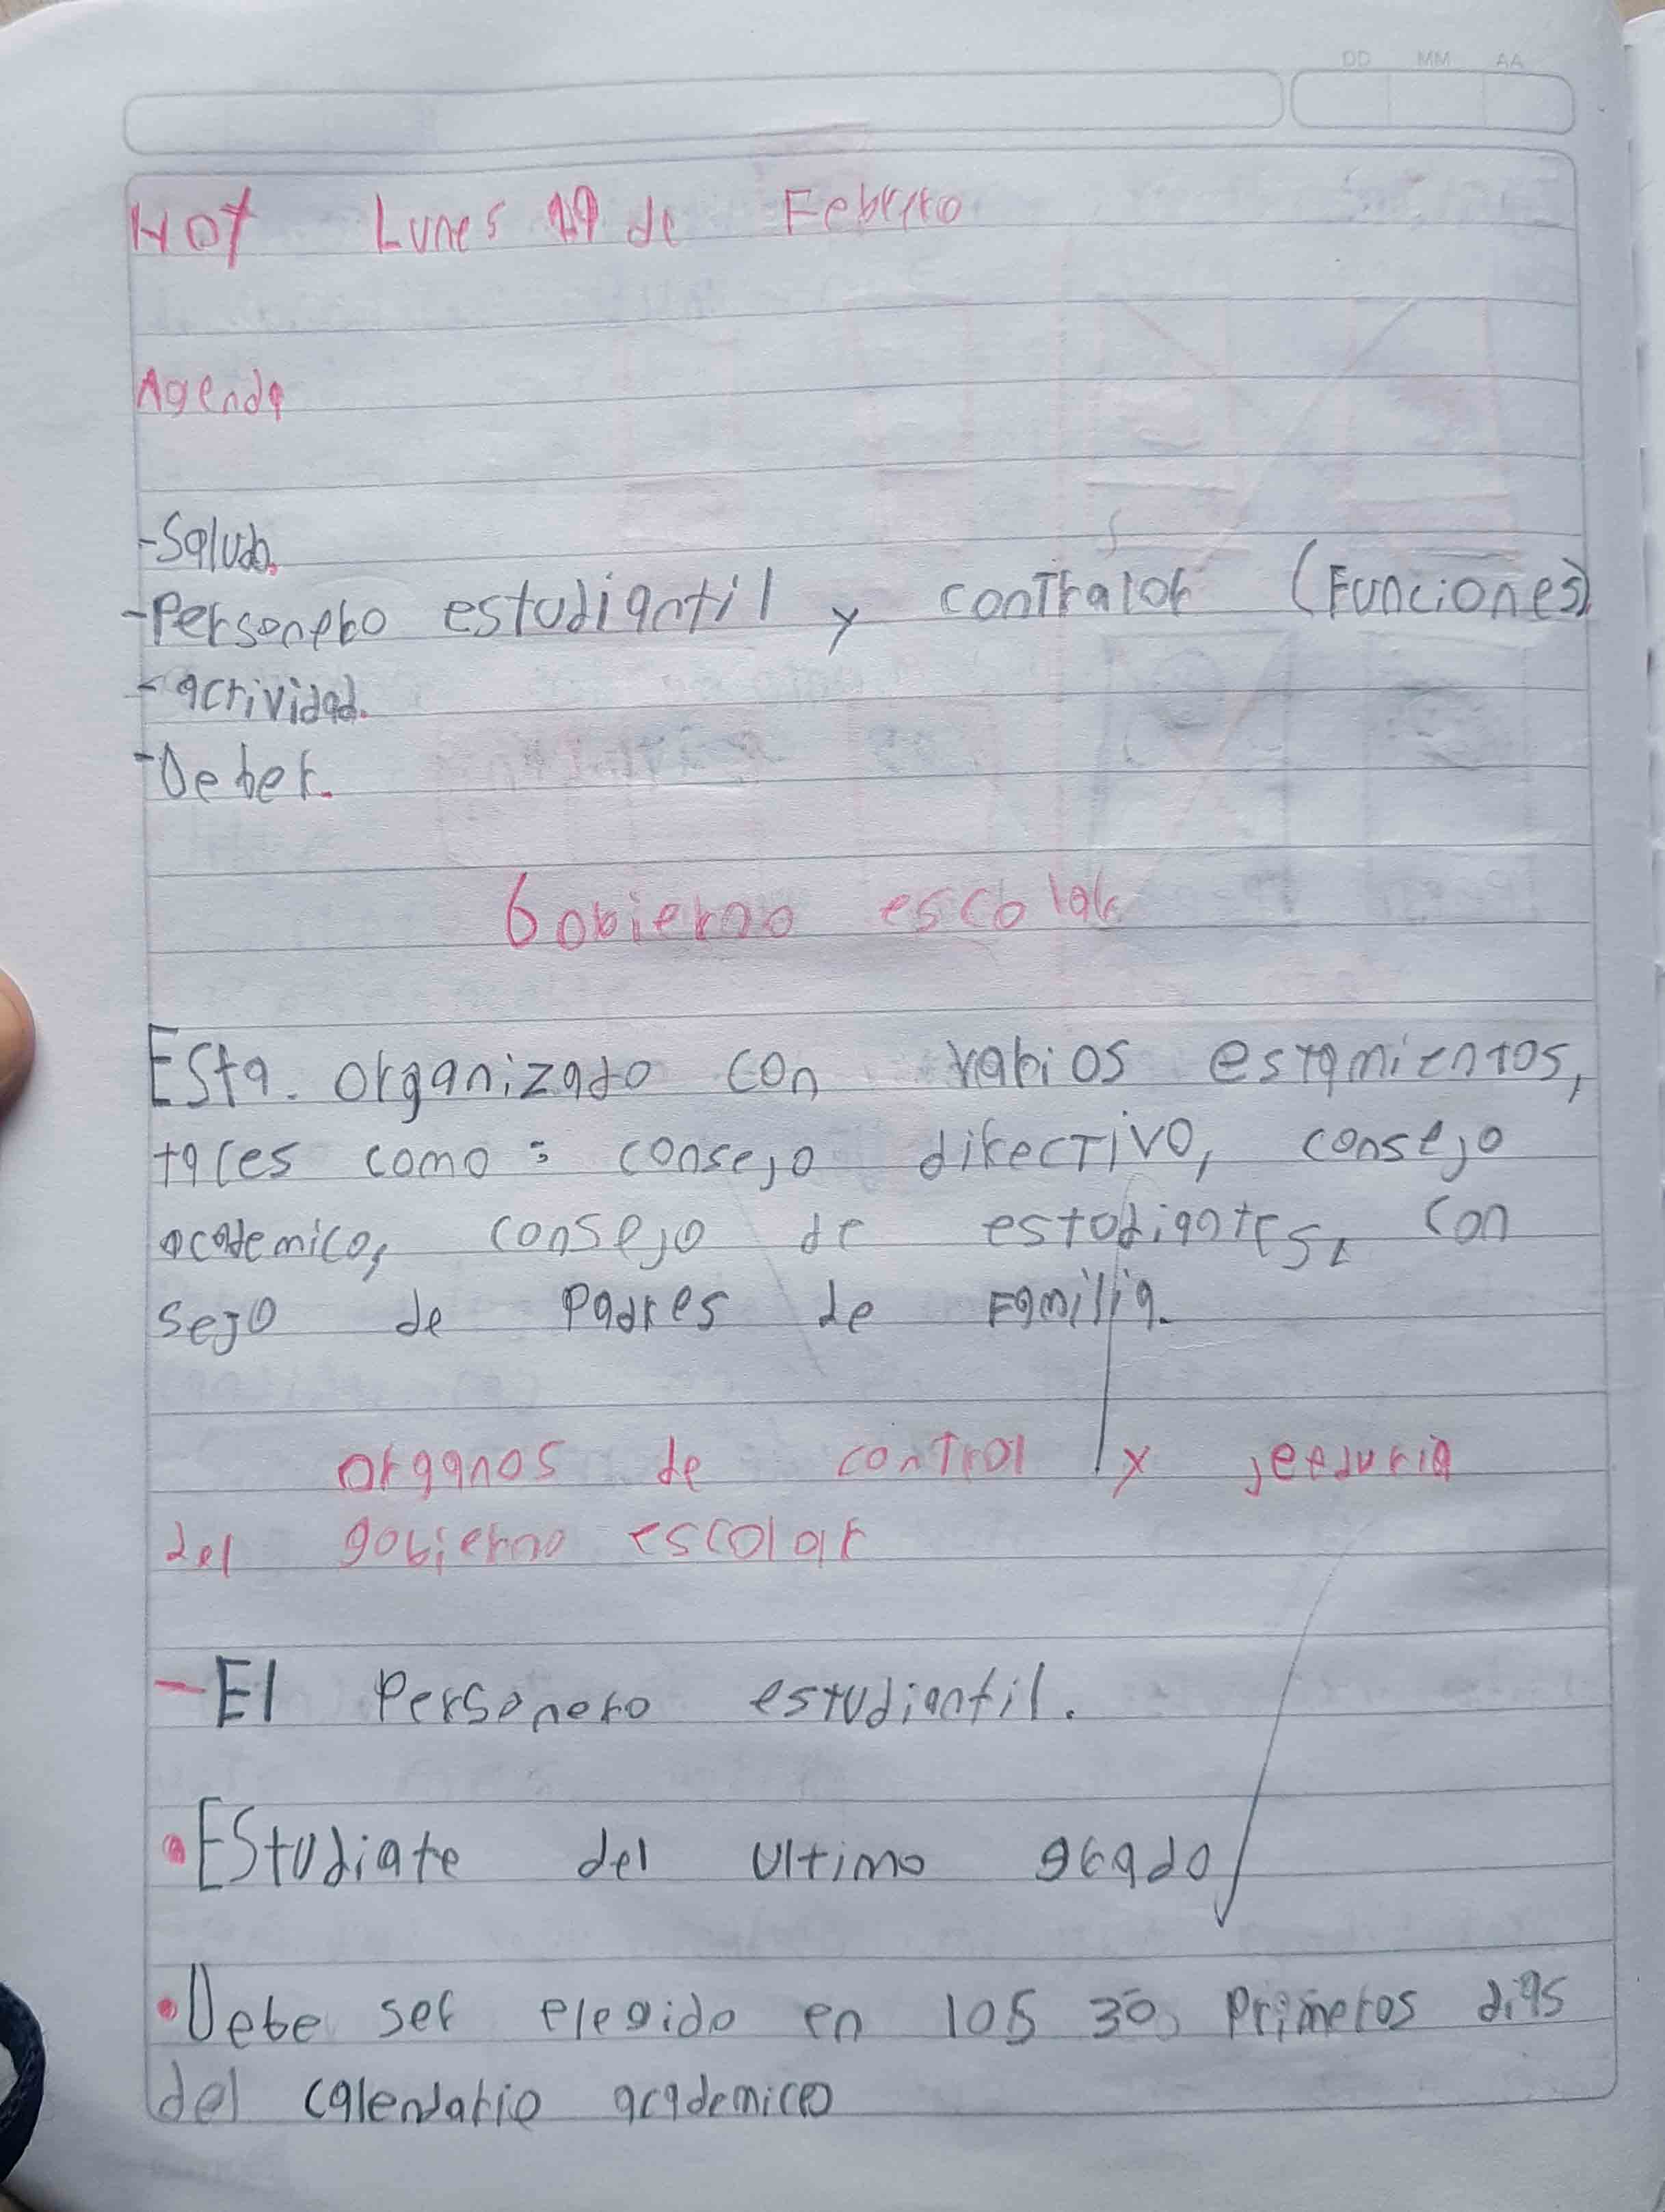 DD MM AA
HOY Lunes 19 de Febrero
Agenda
-Saludo.
-Personero estudiantil y contralor (Funciones)
- actividad.
-Deber.
Gobierno escolar
Esta. organizado con varios estamientos,
tales como: consejo directivo, consejo
academico, consejo de estudiantes, con
sejo de Padres de Familia.
organos de control y veeduria
del gobierno escolar
- El Personero estudiantil.
• EStudiate del ultimo grado
• Debe ser elegido en los 30 Primeros dias
del calendario academico